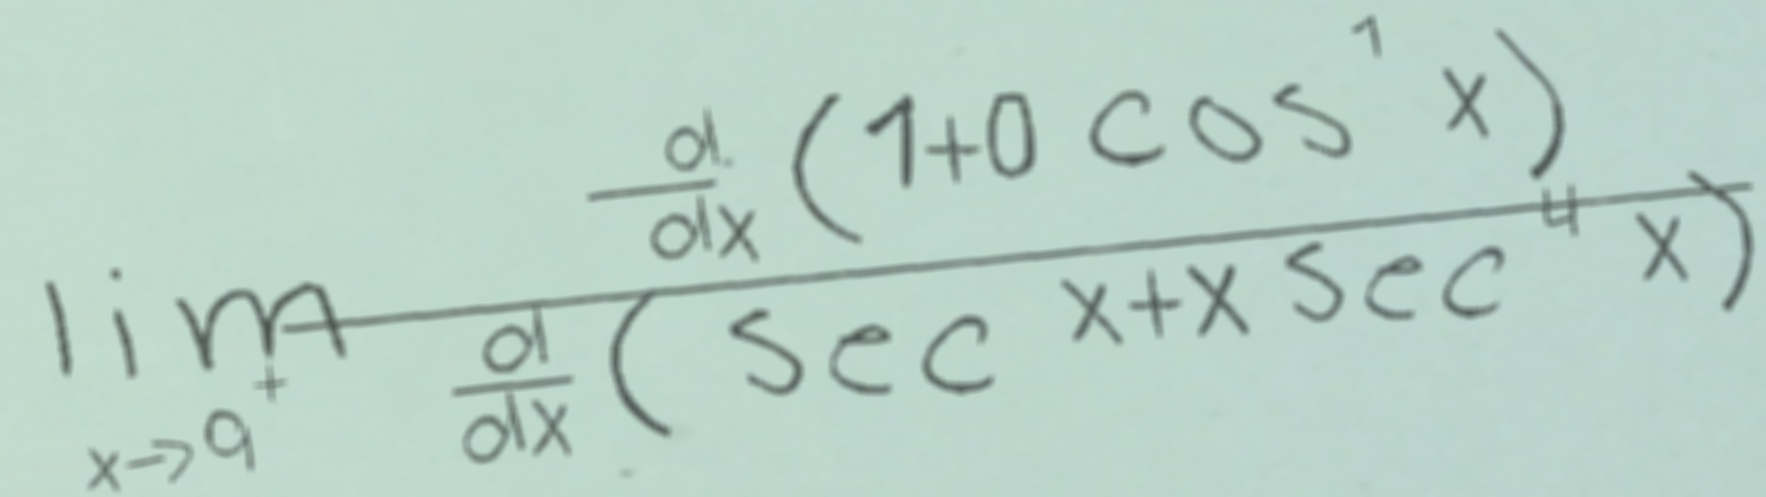 \lim_{x \to 9^{+}} \frac{\frac{d}{dx}(1+0\cos^{1}x)}{\frac{d}{dx}(\sec x+x\sec^{4}x)}